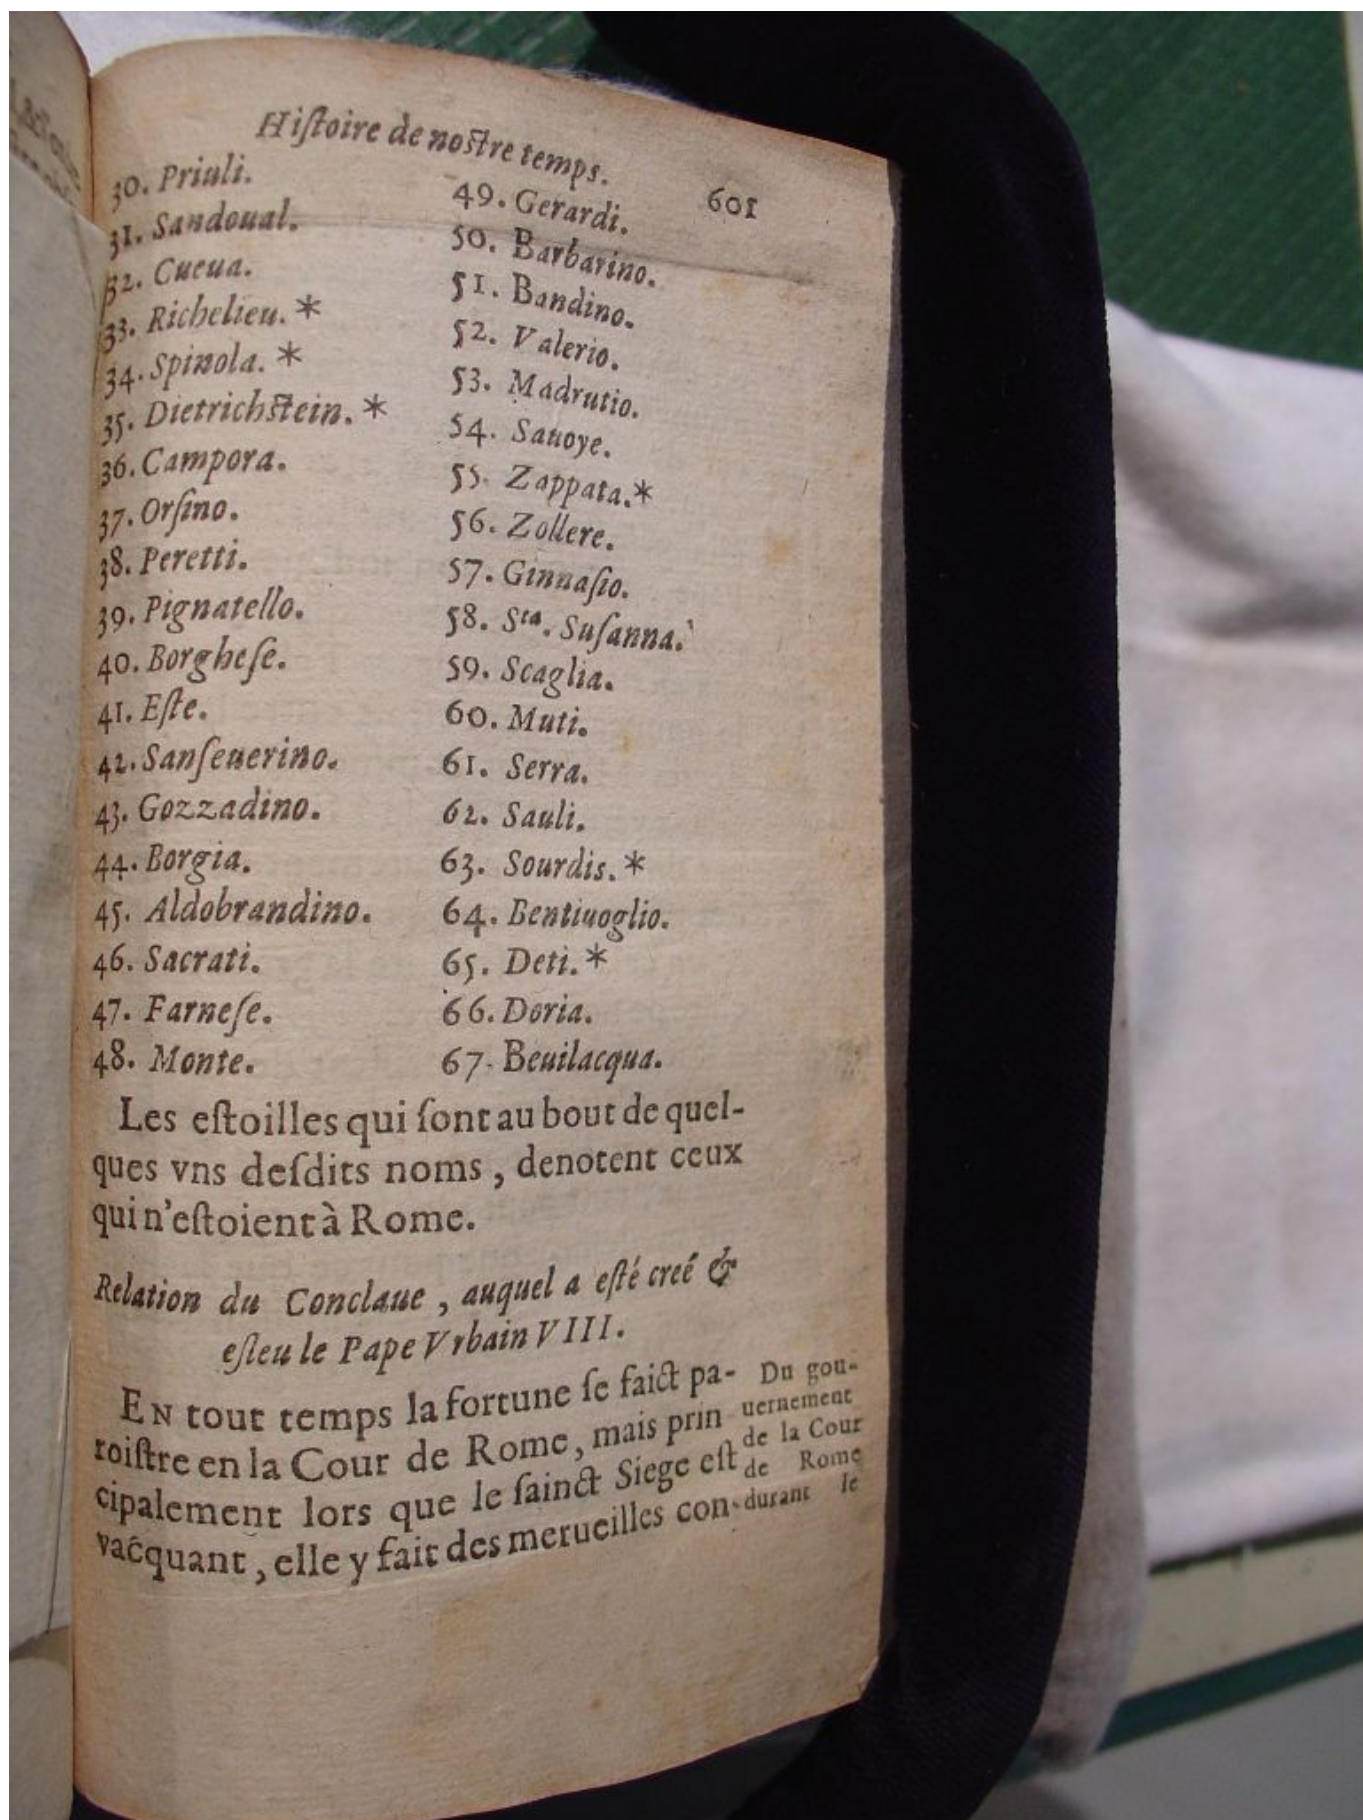 Histoire de nostre temps. 601
30. Priuli.
31. Sandoual.
32. Cueua.
33. Richelieu. *
34. Spinola. *
35. Dietrichstein. *
36. Campora.
37. Orſino.
38. Peretti.
39. Pignatello.
40. Borgheſe.
41. Eſte.
42. Sanſeuerino.
43. Gozzadino.
44. Borgia.
45. Aldobrandino.
46. Sacrati.
47. Farneſe.
48. Monte.
49. Gerardi.
50. Barbarino.
51. Bandino.
52. Valerio.
53. Madrutio.
54. Sauoye.
55. Zappata. *
56. Zollere.
57. Ginnaſio.
58. Sta. Suſanna.
59. Scaglia.
60. Muti.
61. Serra.
62. Sauli.
63. Sourdis. *
64. Bentiuoglio.
65. Deti. *
66. Doria.
67. Beuilacqua.
Les eſtoilles qui ſont au bout de quel-
ques vns deſdits noms, denotent ceux
qui n'eſtoient à Rome.
Relation du Conclaue, auquel a eſté creé &
eſleu le Pape Vrbain VIII.
EN tout temps la fortune ſe faict pa-
roiſtre en la Cour de Rome, mais prin
cipalement lors que le ſainct Siege eſt
vacquant, elle y fait des merueilles con-
Du gou-
uernement
de la Cour
de Rome
durant le